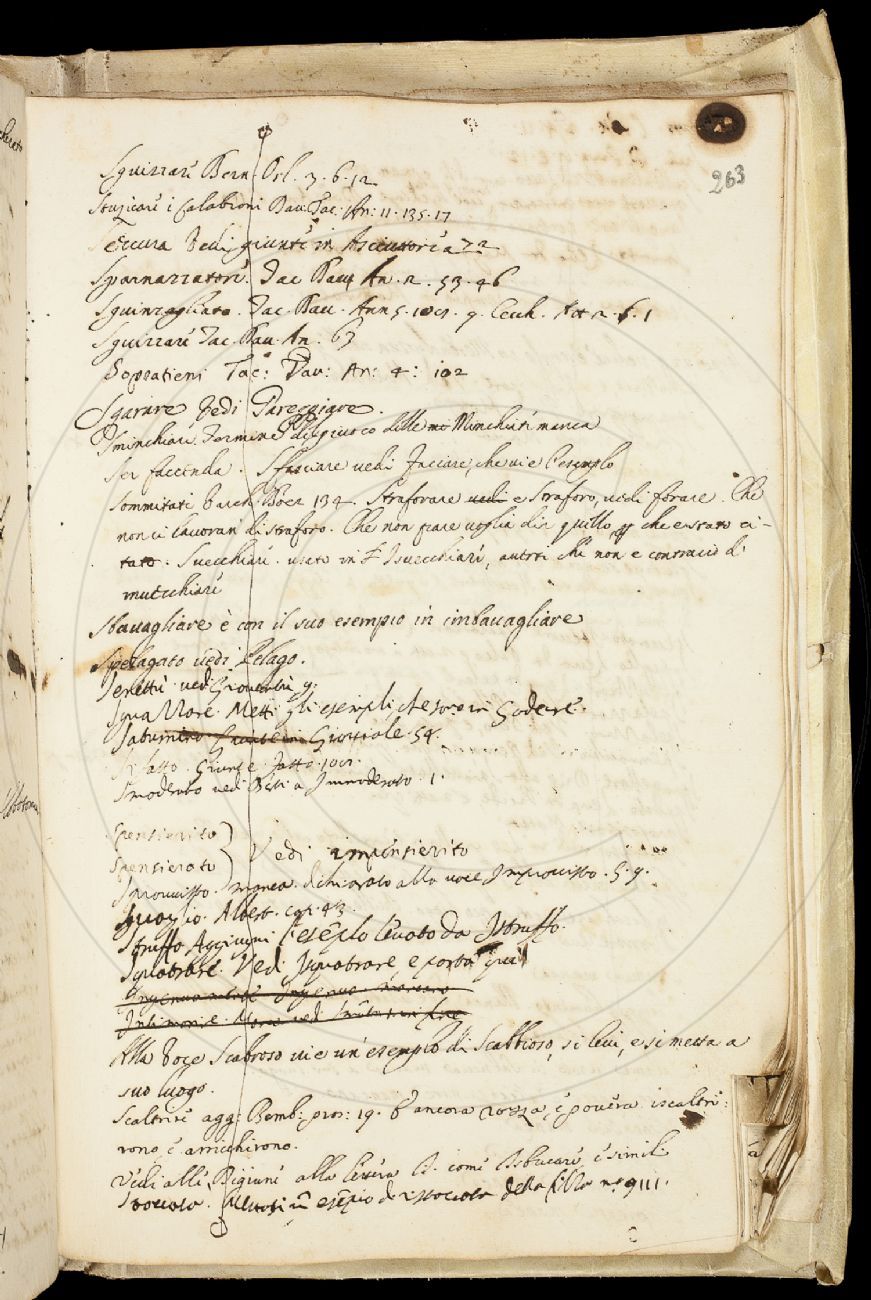 263
Sguizzare Bern. Orl. 3. 6. 12
Stuzicare i Calabroni Dav. Tac. An: 11. 135. 17
vedi giunte in Asciuttore a 72
Sparnazzatore. Tac Dav An. 2. 53. 46
Sguinzagliato. Tac. Dav. Ann 5. 9. Cecch. 2. 6. 1
Sguizzare Tac. Dav. An. 63
Soprattieni Tac: Dav: An: 4: 102
Sgarare vedi Pareggiare.
Sminchiare Termine del giuoco delle Minchiate manca
Ser faccenda. Sfasciare vedi fasciare, che vi è l'esemplo
Sommitati Varch. Boez 134. Straforare vedi e Straforo, vedi forare. Che
non ci lavoran di straforo. Che non pare voglia dir quello che è stato ci-
tato. Svecchiare. usato in Isvecchiare, che non è contrario di
invecchiare
Sbavagliare è con il suo esempio in imbavagliare
Spelagato vedi Pelago.
Senettù vedi Gioventù 9.
Squallore. Metti gli esempli, che sono in Godere.
Saturnino Gioviale. 54.
Sifatto. Giunte fatto.
Smoderato vedi a Immoderato. 1.
Spensierito
Spensierato } Vedi impensierito
Sprovvisto manca. dichiarato alla voce Improvvisto. 5. 9.
Albert. cap. 43.
Struffo Aggiugni l'esẽplo levato da Istruffo.
Squatrare. Vedi Isquatrare, e porta qui
Alla voce Scabroso vi è un'esemplo di Scabbioso, si levi, e si metta a
suo luogo.
Scaltrire agg: Bemb: pros: 19. ancora rozza, e povera iscaltri:
rono, e arricchirono.
Vedi alle Rigiune alla lettera B. come Isbucare, e simile
esẽpio di della